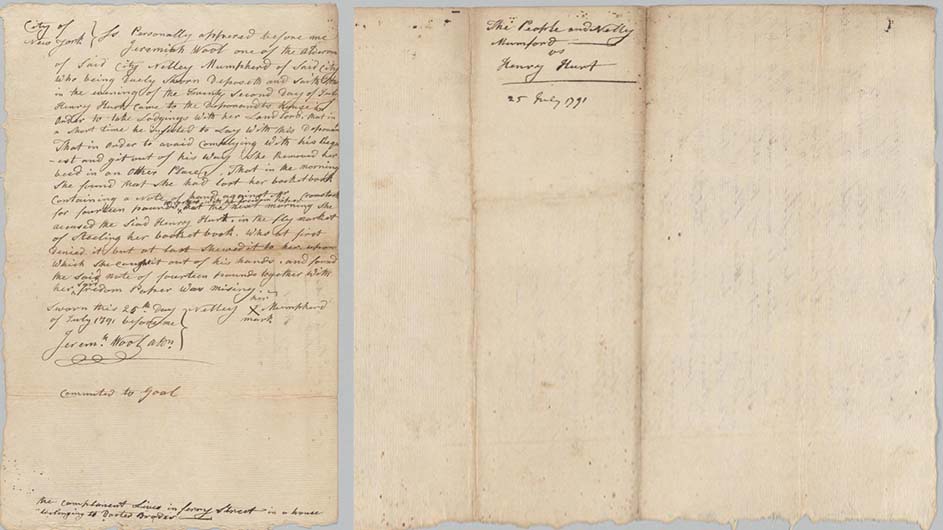 City of
New York } Ss Personally appeared before me
Jeremiah Wool one of the Alderm
of Said City Nelley Mumpherd of Said City
Who being Duely Sworn Deposeth and saith
in the evening of the Twenty Second Day of July
Henry Hurt, came to the Deponants house in
Order to take Lodgings with her Landlord, that in
a Short time he Insisted to Lay With this Deponan
That in Order to avaid Complying With his Requ
-est and git out of his Way She Removed her
beed in an Other Place, That in the morning
She found that She had lost her Pocket book
Containing a Note of hand against
for fourteen pounds, that the next morning She
accused the Said Henry Hurt, in the fly market
of Steeling her Pocket book. Who at first
Denied it, but at last Shewed it to her, upon
Which She caught it out of his hands, and found
the Said note of fourteen Pounds together With
her Said fredom Paper Was missing.
Sworn this 25th Day
of July 1791 before me
Jeremh. Wool aldn.
Nelley her X mark Mumpherd
Committed to Goal
the Complanent Lives in ferry Street in a house
belonging to
The People and Nelly
Mumford
vs
Henry Hurt
25 July 1791